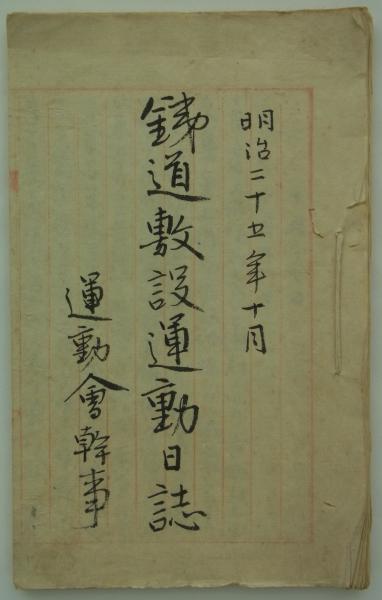 明治二十五年十月
銕道敷設運動日誌
運動會幹事